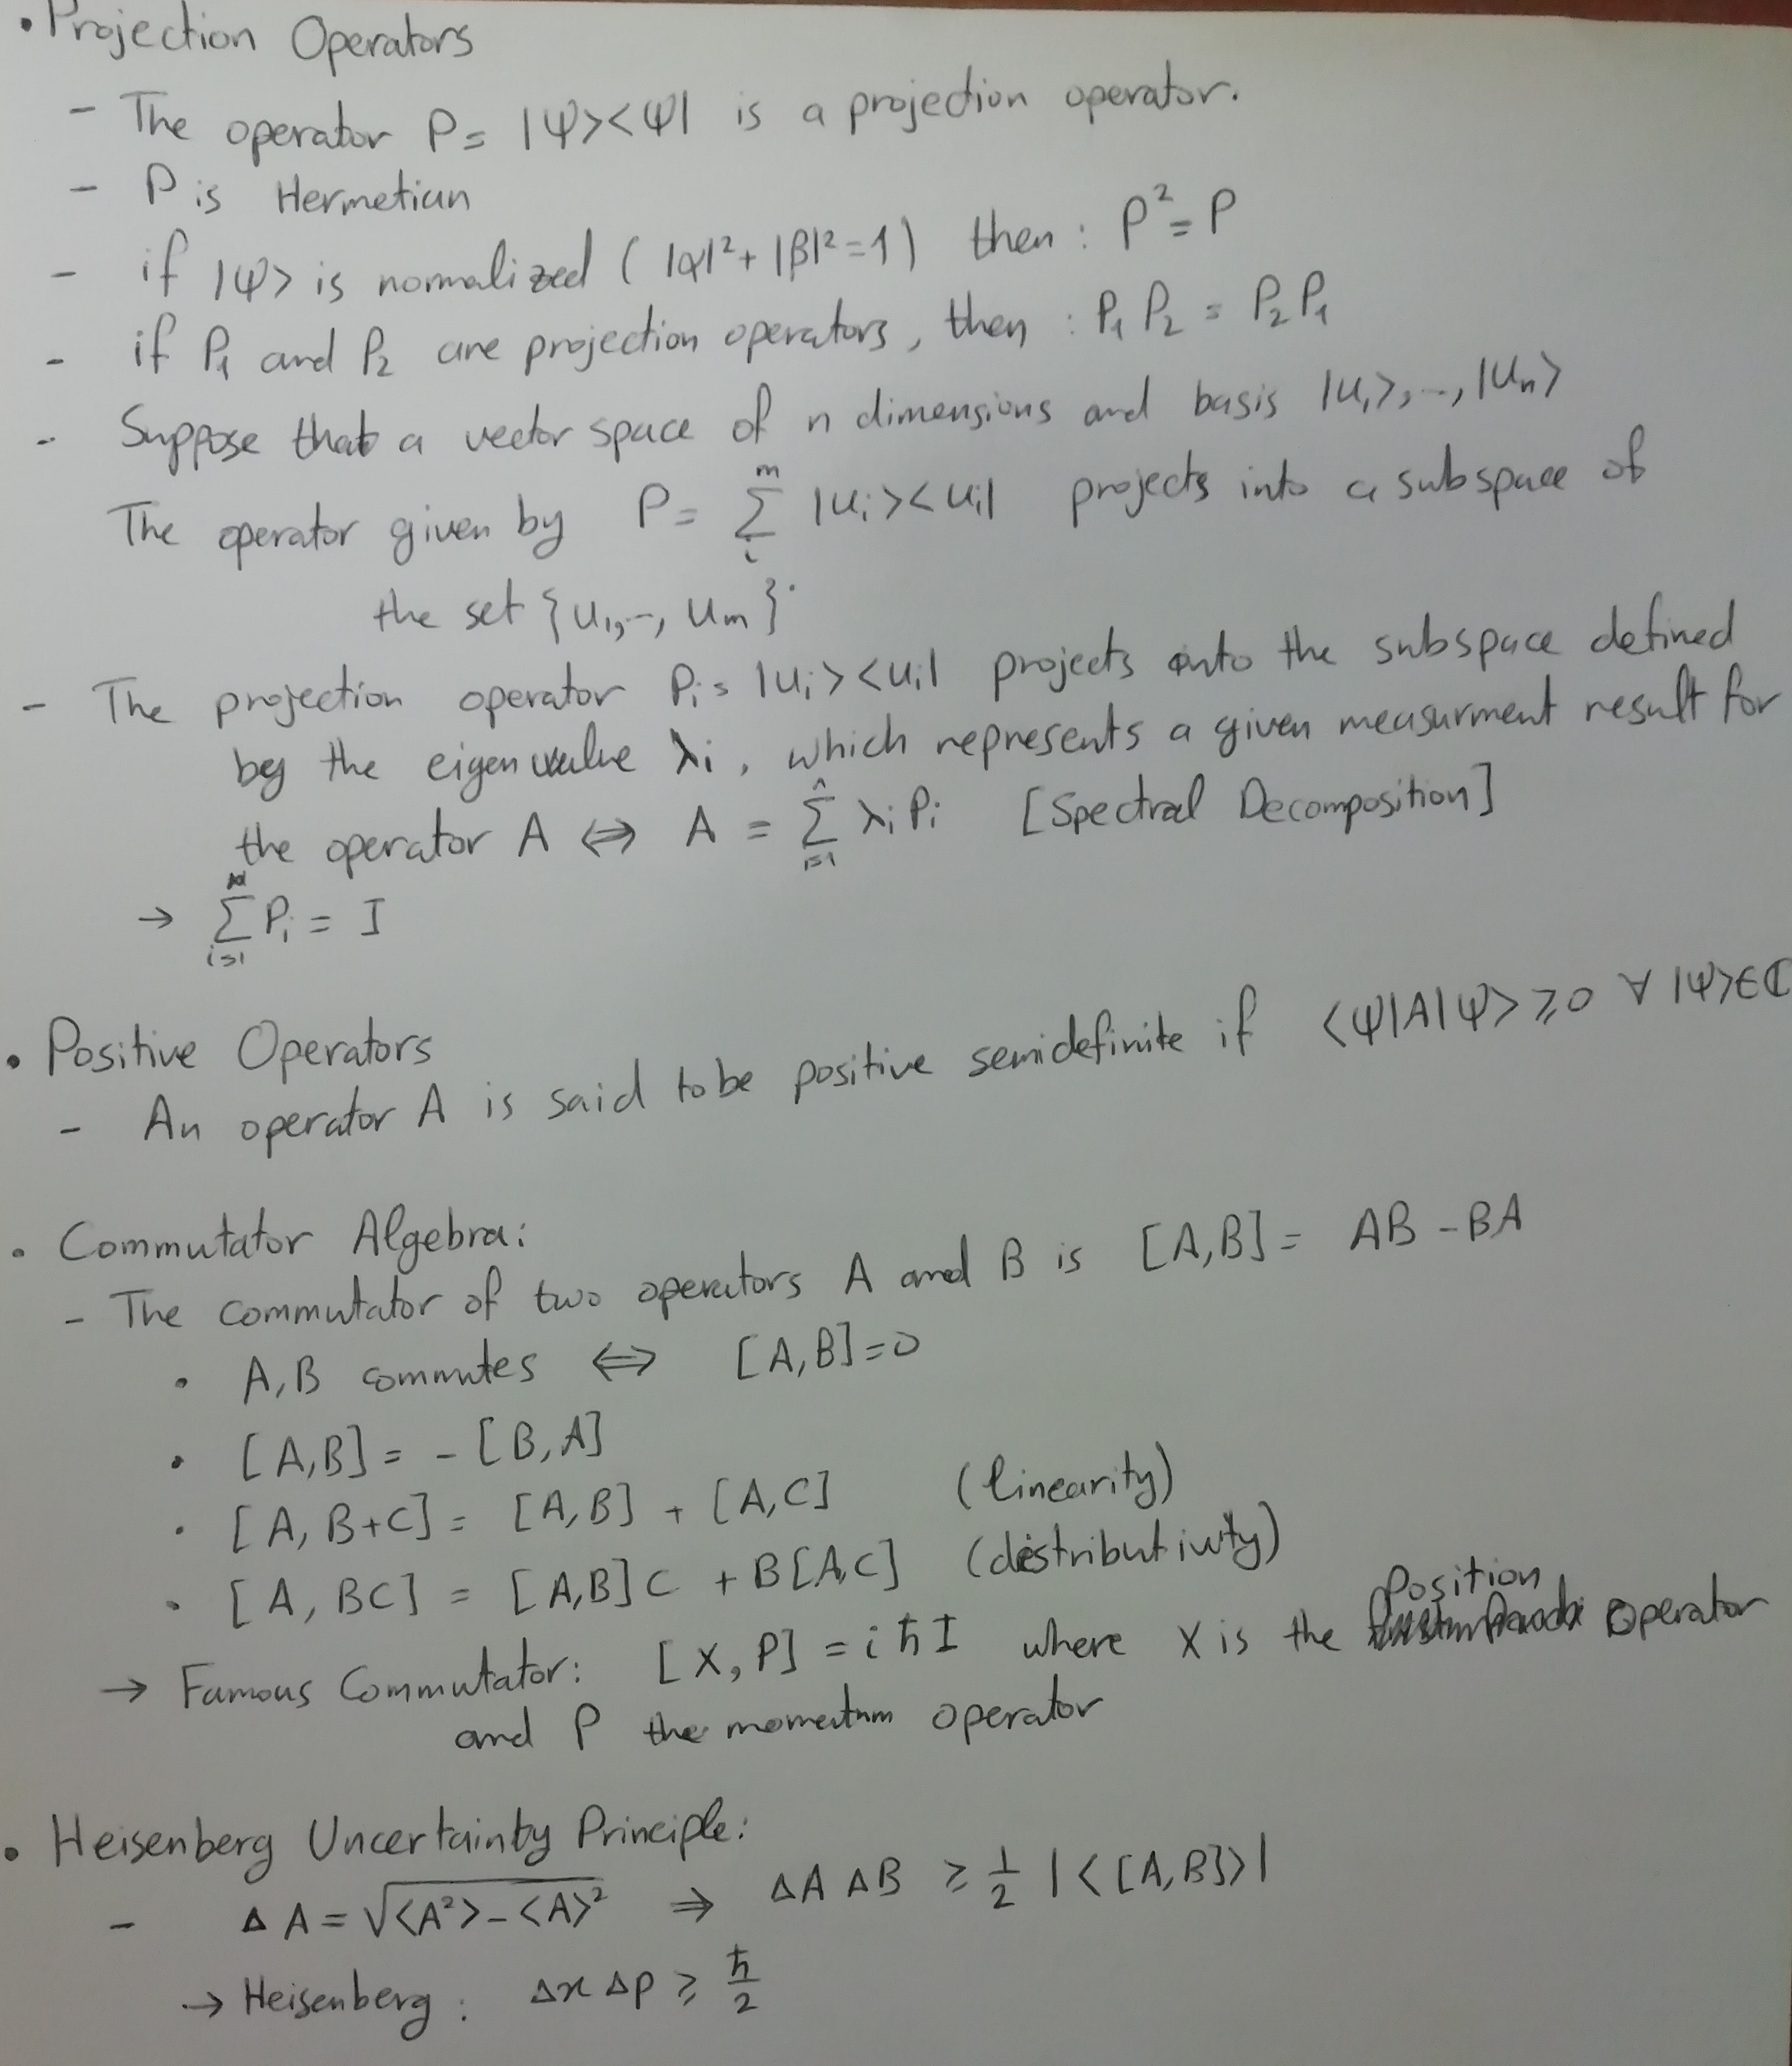 • Projection Operators
- The operator P = |ψ><ψ| is a projection operator.
- P is Hermetian
- if |ψ> is normalized (|α|²+|β|²=1) then : P² = P
- if P₁ and P₂ are projection operators, then : P₁ P₂ = P₂ P₁
- Suppose that a vector space of n dimensions and basis |u₁>,..,|uₙ>
The operator given by P = Σᵢᵐ |uᵢ><uᵢ| projects into a subspace of
the set {u₁,..,uₘ}.
- The projection operator Pᵢ = |uᵢ><uᵢ| projects onto the subspace defined
by the eigenvalue λᵢ, which represents a given measurment result for
the operator A ⇔ A = Σᵢ₌₁ⁿ λᵢPᵢ [Spectral Decomposition]
→ Σᵢ₌₁ Pᵢ = I
• Positive Operators
- An operator A is said to be positive semidefinite if <ψ|A|ψ> ⩾ 0 ∀ |ψ>∈ℂ
• Commutator Algebra:
- The commutator of two operators A and B is [A,B] = AB - BA
• A,B commutes ⇔ [A,B]=0
• [A,B] = - [B,A]
• [A, B+C] = [A,B] + [A,C] (linearity)
• [A, BC] = [A,B]C + B[A,C] (distributivity)
→ Famous Commutator: [X,P] = iħI where X is the Position Operator
and P the momentum operator
• Heisenberg Uncertainty Principle:
- Δ A = √<A²>-<A>² ⇒ ΔA ΔB ≥ ½ |<[A,B]>|
→ Heisenberg: Δx Δp ⩾ ħ/2